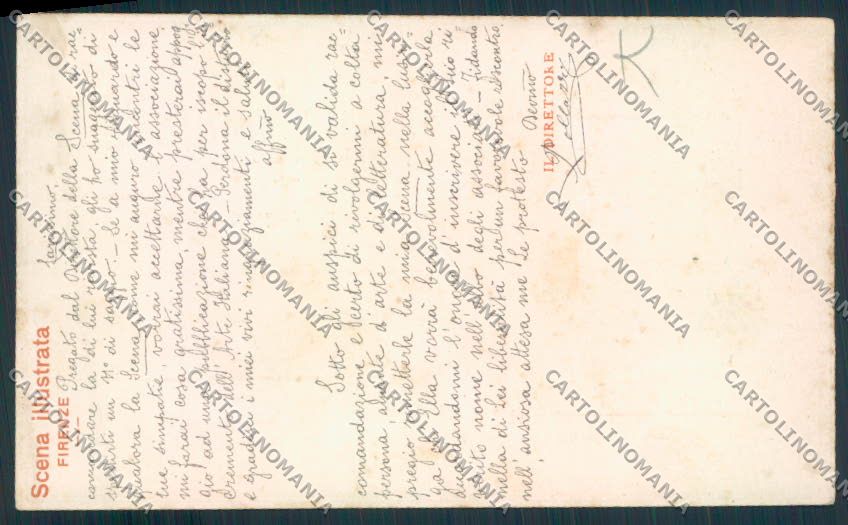 Scena illustrata
FIRENZE
Carissimo.
Pregato dal Direttore della Scena di rac=
comandare la di lui rivista, gli ho suggerito di
inviarti un n° di saggio. — Se a mio riguardo e
qualora la Scena, come mi auguro incontri le
tue simpatie, vorrai accettarne l'associazione,
mi farai cosa gratissima, mentre presterai appog
gio ad una pubblicazione che ha per iscopo l'in=
cremento dell'Arte Italiana. — Perdona il disturbo
e gradisci i miei vivi ringraziamenti e saluti
affmo
Sotto gli auspici di sì valida rac=
comandazione e certo di rivolgermi a colta
persona amante d'arte e di letteratura, mi
pregio rimetterle la mia Scena nella lusin=
ga ch'Ella vorrà benevolmente accoglierla
accordandomi l'onore d'inscrivere il suo ri
verito nome nell'albo degli associati. — Fidando
nella di Lei liberalità per un favorevole riscontro,
nell'ansiosa attesa me Le protesto
Devmo
IL DIRETTORE
Pollazzi
CARTOLINOMANIA